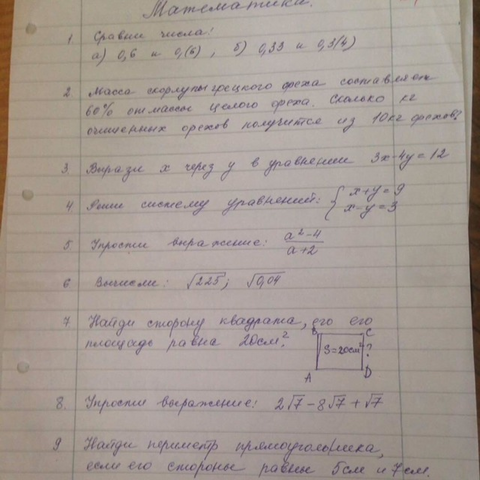 Математика.
1. Сравни числа:
а) 0,6 и 0,(6), б) 0,33 и 0,3(4)
2. Масса скорлупы грецкого ореха составляет
60% от массы целого ореха. Сколько кг
очищенных орехов получится из 10 кг орехов?
3 Вырази x через y в уравнении 3x-4y=12
4 Реши систему уравнений: { x+y=9
x-y=3
5 Упрости выражение: a²-4
a+2
6 Вычисли: √225; √0,04
7 Найди сторону квадрата, его его
площадь равна 20см².
B C
S=20см² ?
A D
8. Упрости выражение: 2√7-8√7+√7
9 Найди периметр прямоугольника,
если его стороны равны 5см и 7см.